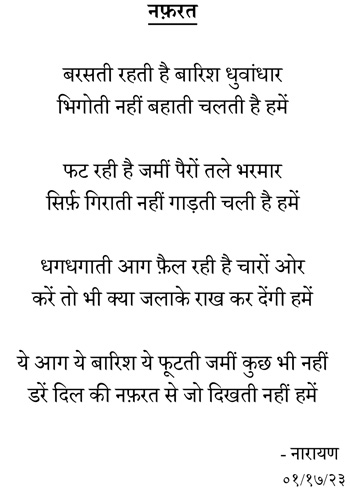 नफ़रत
बरसती रहती है बारिश धुवांधार
भिगोती नहीं बहाती चलती है हमें
फट रही है जमीं पैरों तले भरमार
सिर्फ़ गिराती नहीं गाड़ती चली है हमें
धगधगाती आग फ़ैल रही है चारों ओर
करें तो भी क्या जलाके राख कर देंगी हमें
ये आग ये बारिश ये फूटती जमीं कुछ भी नहीं
डरें दिल की नफ़रत से जो दिखती नहीं हमें
- नारायण
०१/१७/२३